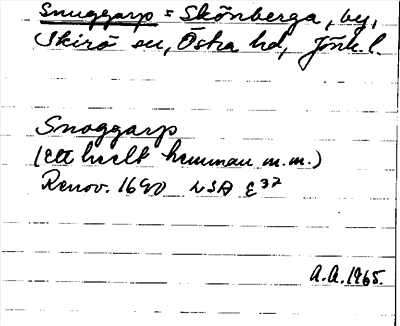 Snuggarp = Skönberga, by,
Skirö sn, Östra hd, Jönk. l.
Snoggarp
(Ett heelt hemman m.m.)
Renov. 1690 LSA E 37
A.A. 1965.